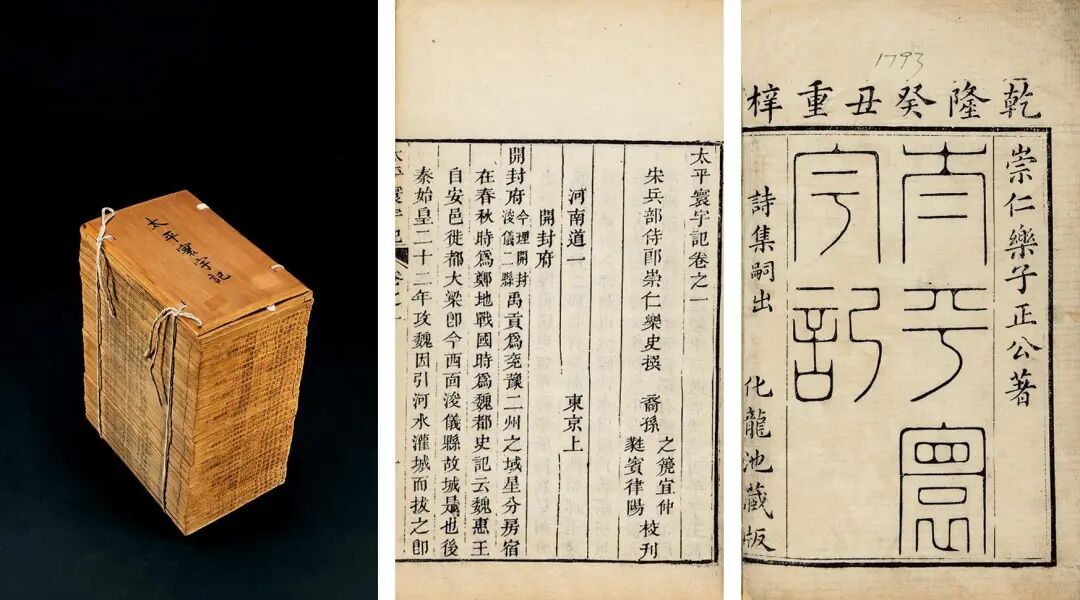 太平寰宇記
太平寰宇記卷之一
宋兵部侍郎崇仁樂史撰 裔孫
宜仲
蕤賓律陽
校刊
河南道一 東京上
開封府
開封府今理開封浚儀二縣禹貢爲兗豫二州之域星分房宿
在春秋時爲鄭地戰國時爲魏都史記云魏惠王
自安邑徙都大梁卽今西面浚儀縣故城是也後
秦始皇二十二年攻魏因引河水灌城而拔之卽
1793
乾隆癸丑重梓
崇仁樂子正公著
太平寰
宇記
詩集嗣出 化龍池藏版